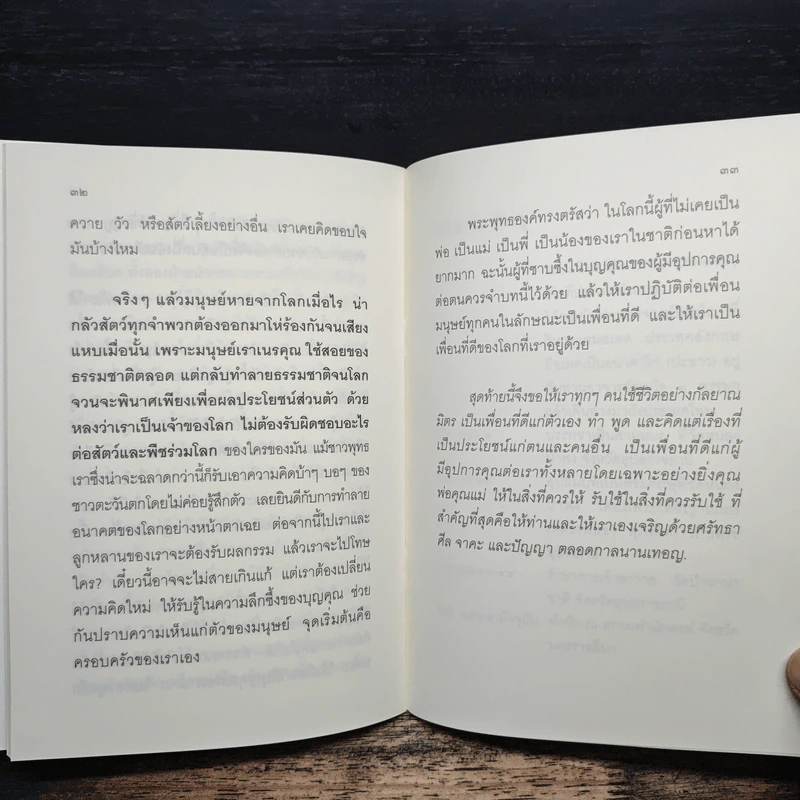 ๓๒
ควาย วัว หรือสัตว์เลี้ยงอย่างอื่น เราเคยคิดขอบใจ
มันบ้างไหม
จริงๆ แล้วมนุษย์หายจากโลกเมื่อไร น่า
กลัวสัตว์ทุกจำพวกต้องออกมาโห่ร้องกันจนเสียง
แหบเมื่อนั้น เพราะมนุษย์เราเนรคุณ ใช้สอยของ
ธรรมชาติตลอด แต่กลับทำลายธรรมชาติจนโลก
จวนจะพินาศเพียงเพื่อผลประโยชน์ส่วนตัว ด้วย
หลงว่าเราเป็นเจ้าของโลก ไม่ต้องรับผิดชอบอะไร
ต่อสัตว์และพืชร่วมโลก ของใครของมัน แม้ชาวพุทธ
เราซึ่งน่าจะฉลาดกว่านี้ก็รับเอาความคิดบ้าๆ บอๆ ของ
ชาวตะวันตกโดยไม่ค่อยรู้สึกตัว เลยยินดีกับการทำลาย
อนาคตของโลกอย่างหน้าตาเฉย ต่อจากนี้ไปเราและ
ลูกหลานของเราจะต้องรับผลกรรม แล้วเราจะไปโทษ
ใคร? เดี๋ยวนี้อาจจะไม่สายเกินแก้ แต่เราต้องเปลี่ยน
ความคิดใหม่ ให้รับรู้ในความลึกซึ้งของบุญคุณ ช่วย
กันปราบความเห็นแก่ตัวของมนุษย์ จุดเริ่มต้นคือ
ครอบครัวของเราเอง
๓๓
พระพุทธองค์ทรงตรัสว่า ในโลกนี้ผู้ที่ไม่เคยเป็น
พ่อ เป็นแม่ เป็นพี่ เป็นน้องของเราในชาติก่อนหาได้
ยากมาก ฉะนั้นผู้ที่ซาบซึ้งในบุญคุณของผู้มีอุปการคุณ
ต่อตนควรจำบทนี้ไว้ด้วย แล้วให้เราปฏิบัติต่อเพื่อน
มนุษย์ทุกคนในลักษณะเป็นเพื่อนที่ดี และให้เราเป็น
เพื่อนที่ดีของโลกที่เราอยู่ด้วย
สุดท้ายนี้จึงขอให้เราทุกๆ คนใช้ชีวิตอย่างกัลยาณ
มิตร เป็นเพื่อนที่ดีแก่ตัวเอง ทำ พูด และคิดแต่เรื่องที่
เป็นประโยชน์แก่ตนและคนอื่น เป็นเพื่อนที่ดีแก่ผู้
มีอุปการคุณต่อเราทั้งหลายโดยเฉพาะอย่างยิ่งคุณ
พ่อคุณแม่ ให้ในสิ่งที่ควรให้ รับใช้ในสิ่งที่ควรรับใช้ ที่
สำคัญที่สุดคือให้ท่านและให้เราเองเจริญด้วยศรัทธา
ศีล จาคะ และปัญญา ตลอดกาลนานเทอญ.